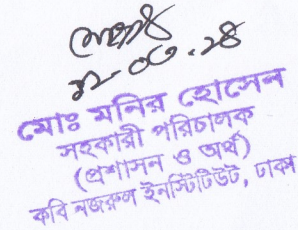 মোঃ মনির হোসেন
সহকারী পরিচালক
(প্রশাসন ও অর্থ)
কবি নজরুল ইনস্টিটিউট, ঢাকা